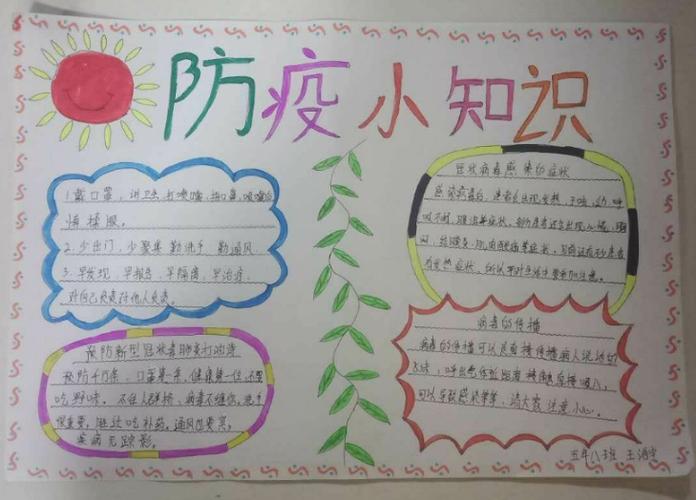 防疫小知识
1.戴口罩，讲卫生，打喷嚏，捂口鼻，喷嚏后
慎揉眼。
2.少出门，少聚集，勤洗手，勤通风
3.早发现，早报告，早隔离，早治疗，
对自己负责对他人负责。
预防新型冠状毒肺炎打油诗
预防千万条，口罩第一条，健康第一位，不要
吃野味。不往人群挤，病毒不缠你，洗手
很重要，
吃补药，通风也要
疾病无踪影。
冠状病毒感染的症状
感染病毒后，
出现发热，干咳，
呼
吸不畅，
症状，
有发热症状，所以平时生活中要多加注意。
病毒的传播
病毒的传播可以是直接传播病人说话的
飞沫，呼出气体近距离接触直接吸入，
可以导致感染
，请大家注意小心。
五年八班 王